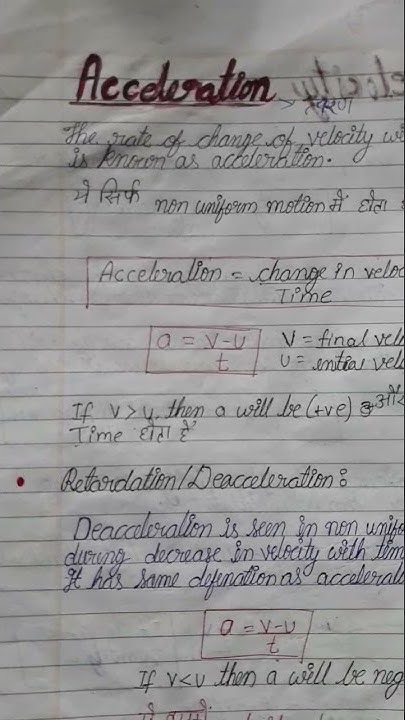 Acceleration
त्वरण
The rate of change of velocity wi
is known as acceleration.
ये सिर्फ non uniform motion में होता
Acceleration = change in veloc
Time
a = v-u
t
V = final vel
U = initial vel
If v > u, then a will be (+ve) और
Time होता है
• Retardation/Deacceleration :
Deacceleration is seen in non unifo
during decrease in velocity with tim
It has same defenation as accelerat
a = v-u
t
If v<u then a will be neg